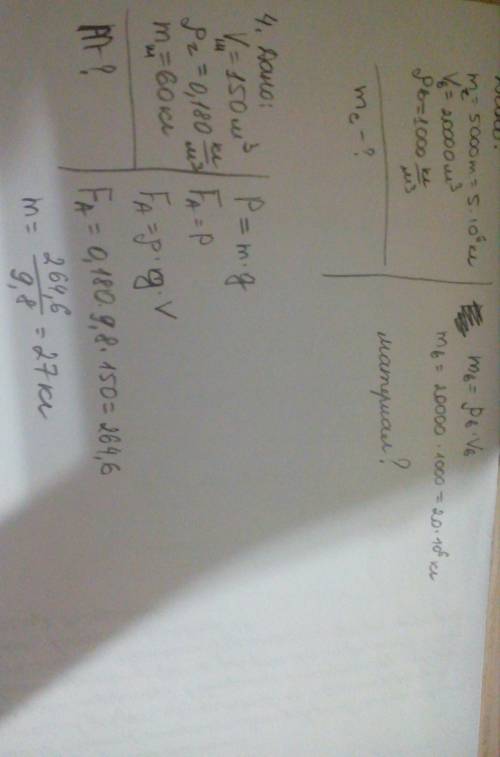 m_c = 5000 т = 5·10⁶ кг
V_в = 20000 м³
ρ_в = 1000 кг/м³
m_c - ?
m_в = ρ_в · V_в
m_в = 20000 · 1000 = 20·10⁶ кг
материал?
4. Дано:
V_ш = 150 м³
ρ_г = 0,180 кг/м³
m_ш = 60 кг
m - ?
P = m·g
F_A = P
F_A = ρ·g·V
F_A = 0,180 · 9,8 · 150 = 264,6
m = 264,6 / 9,8 = 27 кг